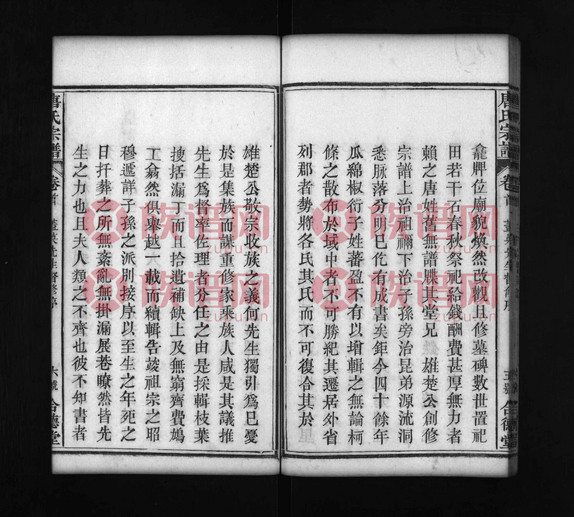 唐氏宗譜
卷首
五號
合德堂
龕牌位廟貌煥然改觀且修墓碑數世置祀
田若干石春秋祭祀給錢酬費甚厚無力者
賴之唐姓舊無譜牒其堂兄 雄楚公創修
宗譜上治祖禰下治子孫旁治昆弟源流洞
悉脈落分明已化有成書矣鉅今四十餘年
瓜綿椒衍子姓蕃盈不有以增輯之無論柯
條之散布於域中者不可勝紀其遷居外省
列郡者勢將各氏其氏而不可復合其於
雄楚公敬宗收族之義何先生獨引爲已憂
於是集族而謀重修家乘族人咸是其議推
先生爲督率佐理者分任之由是採輯枝葉
搜括漏丁而且拾遺補缺上及無窮齊費鳩
工翕然俱舉越一載而續輯告竣祖宗之昭
穆遞詳子孫之派別接序以至生之年死之
日扦葬之所無紊亂無掛漏展卷暸然皆先
生之力也且夫人類之不齊也彼不知書者
唐氏宗譜
卷首
六號
合德堂
族譜网
zupu.cn